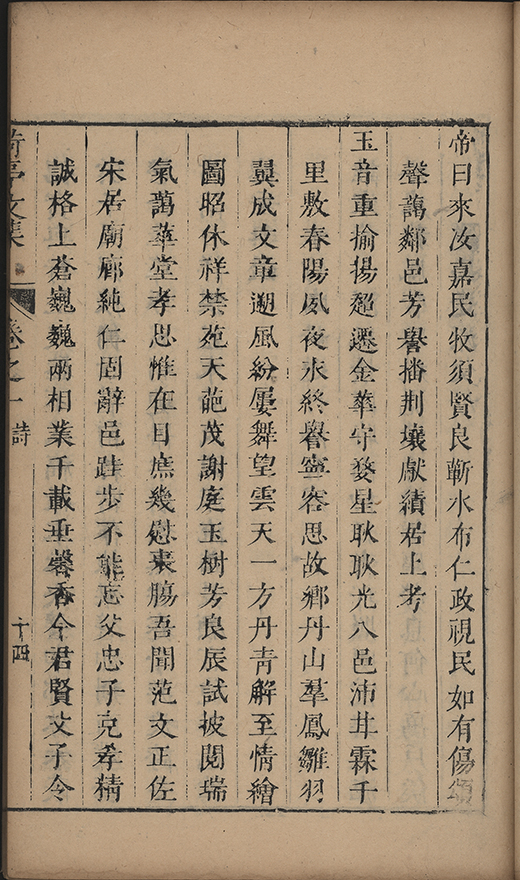 帝曰來汝嘉民牧須賢良蘄水布仁政視民如有傷頌
聲藹鄰邑芳譽播荆壤獻績居上考
玉音重揄揚超遷金華守婺星耿耿光八邑沛甘霖千
里敷春陽夙夜永終譽寧容思故鄉丹山羣鳳雛羽
翼成文章遡風紛屢舞望雲天一方丹青解至情繪
圖昭休祥禁苑天葩茂謝庭玉樹芳良辰試披閱瑞
氣藹華堂孝思惟在目庶幾慰衷腸吾聞范文正佐
宋居廟廊純仁固辭邑跬步不能忘父忠子克孝精
誠格上蒼巍巍兩相業千載垂馨香今君賢父子令
荷亭文集 卷之一 詩 十四